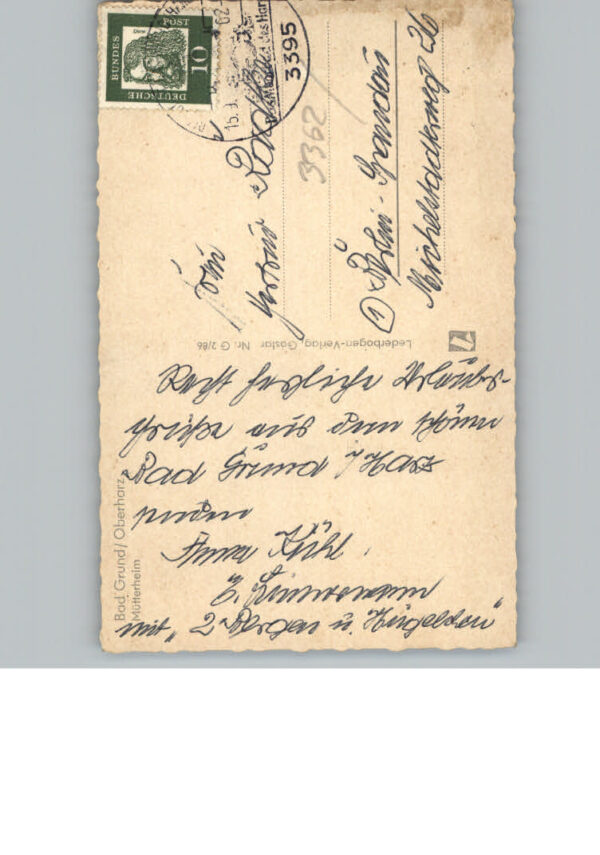 Recht herzliche Urlaubs-
grüße aus dem schönen
Bad Grund / Harz
senden
Anna Kühl.
E. Zimmermann
mit „2 Bergen u. Hügelchen“
Bad Grund / Oberharz
Mütterheim
Lederbogen-Verlag, Goslar Nr. G 2/86
7
Fam
Gertrud
① Berlin-Spandau
Michelstadtweg 26
3362
3395
15.9.
62-
DEUTSCHE
BUNDES
POST
10